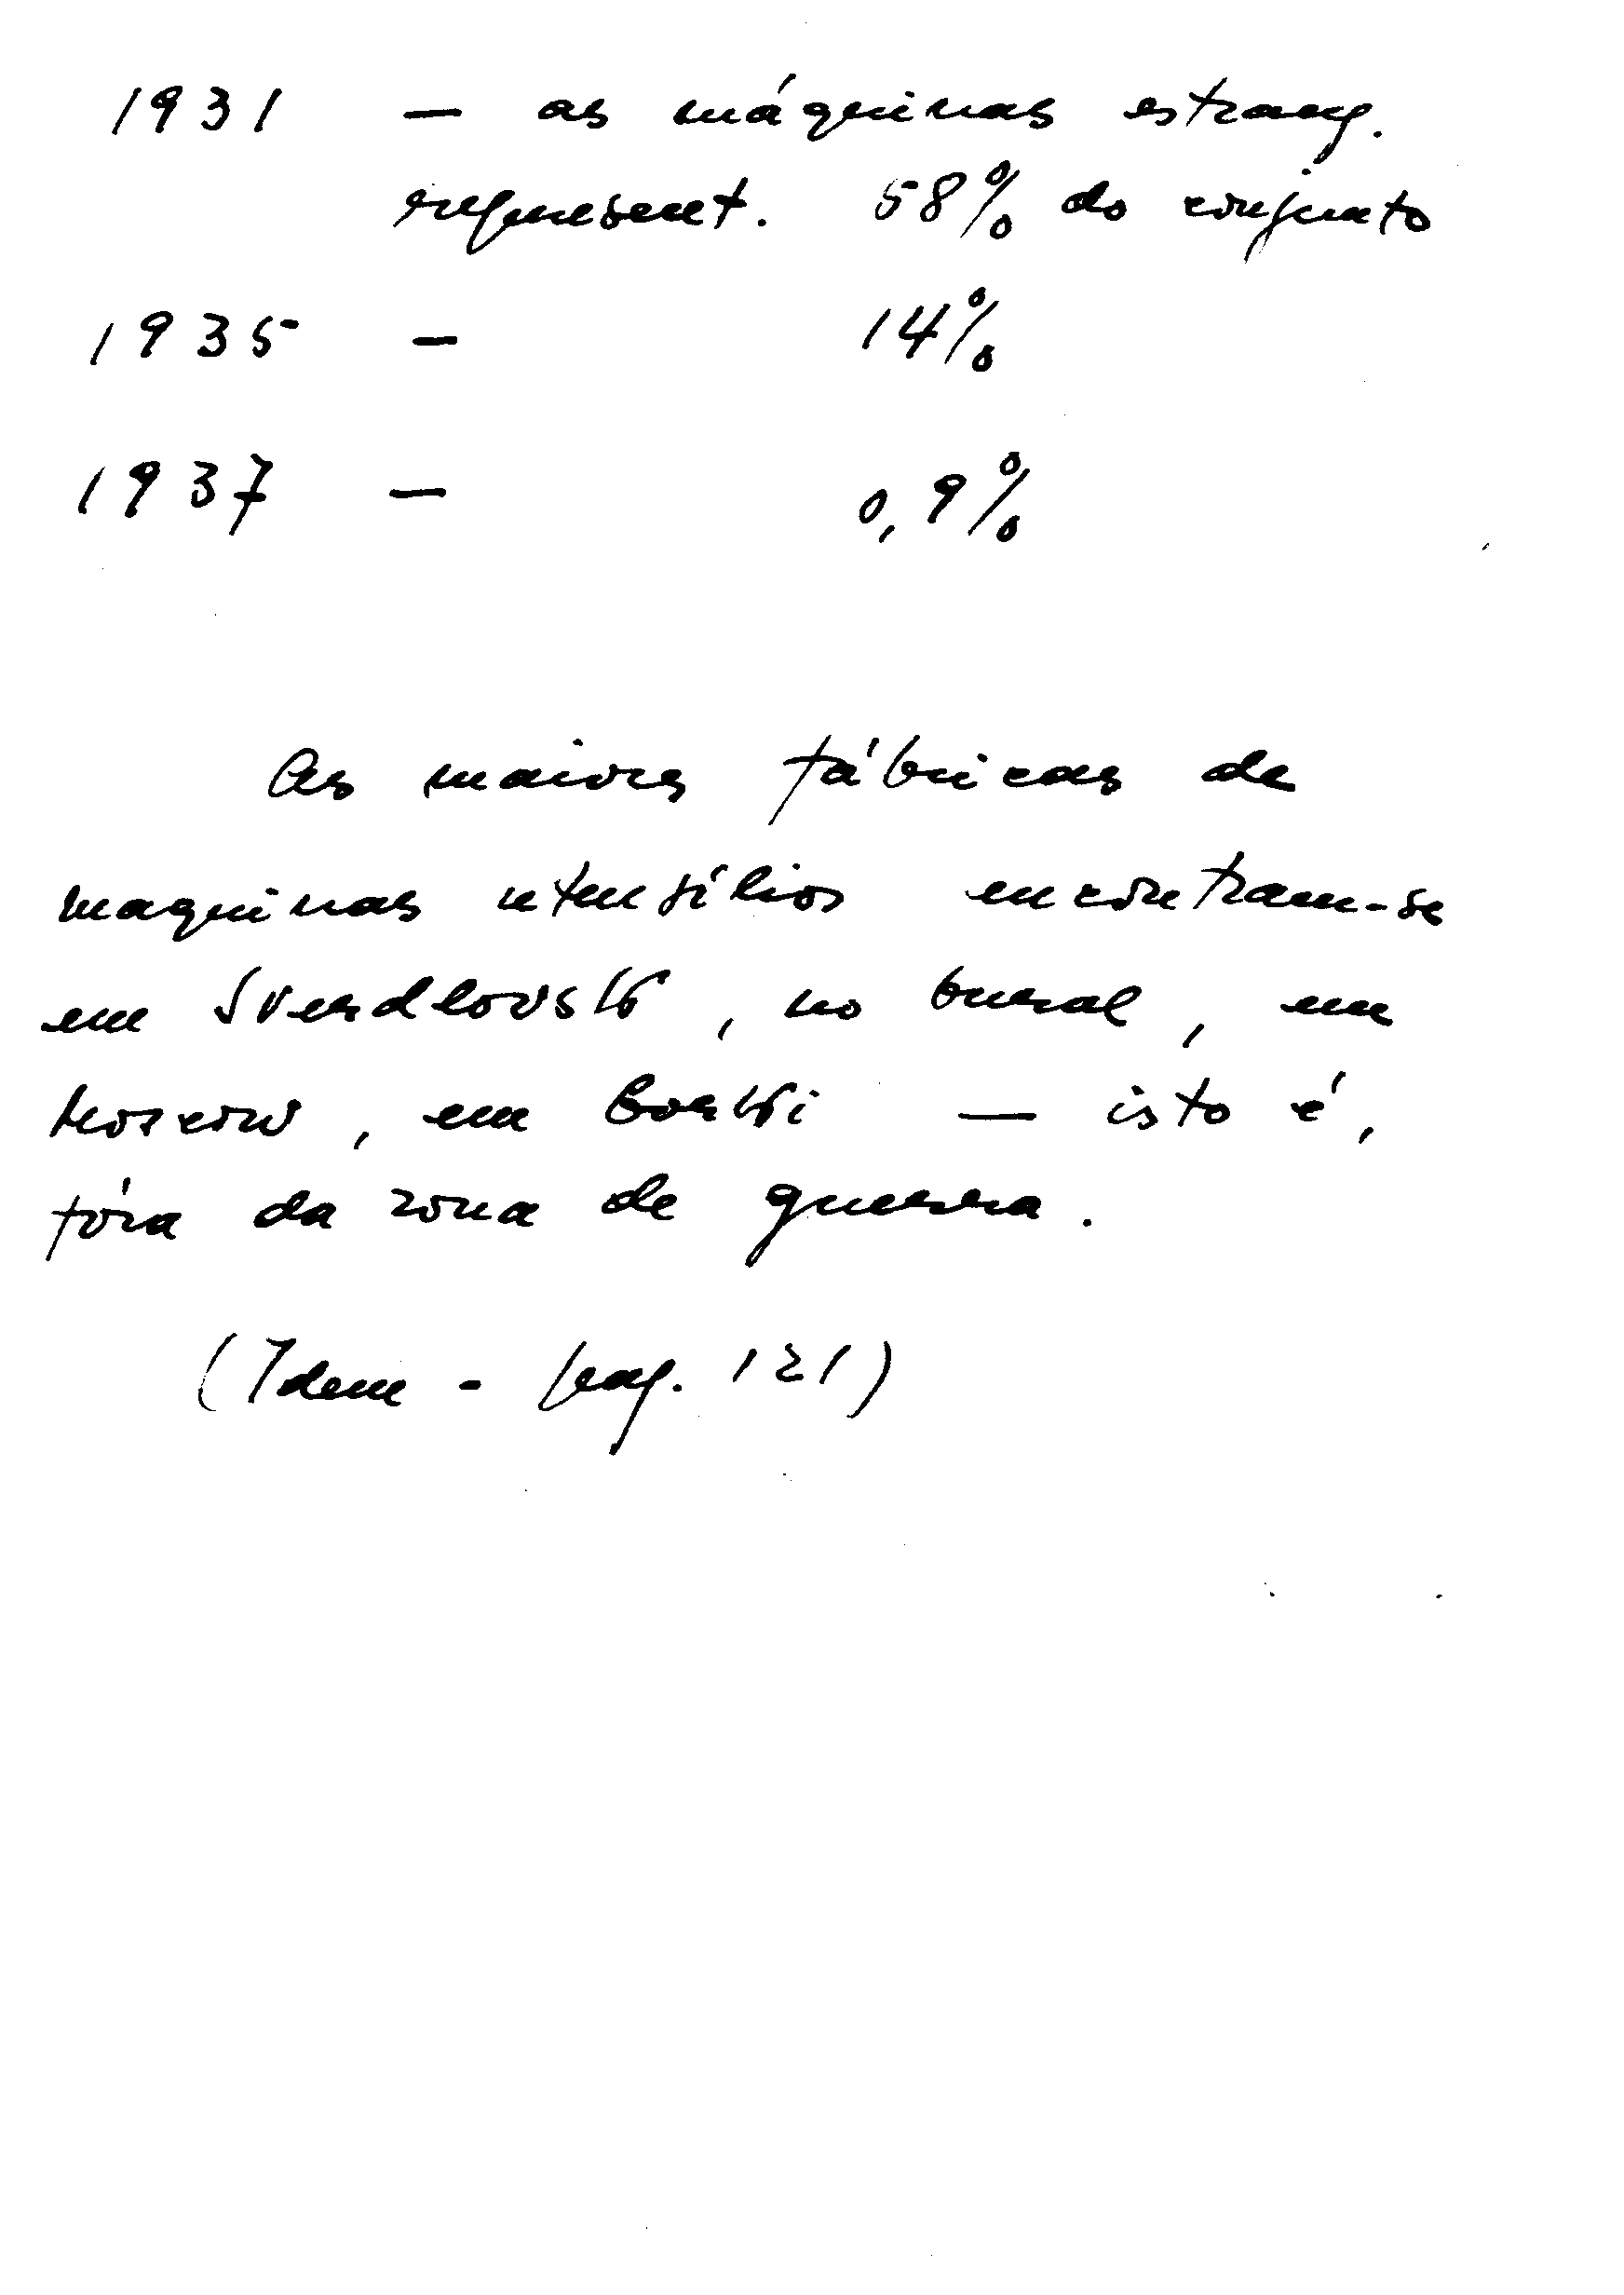 1931 — as máquinas estrang.
represent. 58% do conjunto
1935 — 14%
1937 — 0,9%
As maiores fábricas de
maquinas utensílios encontram-se
em Sverdlovsk, no Oural, em
Moscow, em Gorki — isto é,
fóra da zona de guerra.
(Idem - pag. 121)